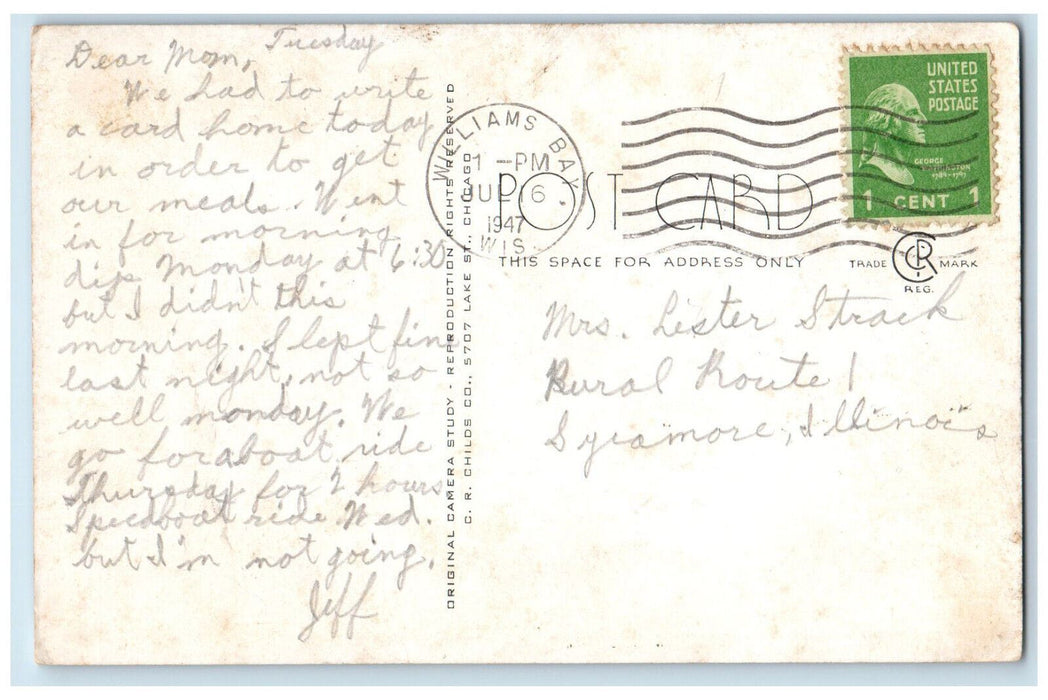 Tuesday
Dear Mom,
We had to write
a card home today
in order to get
our meals. Went
in for morning
dip Monday at 6:30
but I didn't this
morning. Slept fine
last night, not so
well monday. We
go for a boat ride
Thursday for 2 hours
Speedboat ride Wed.
but I'm not going.
Jeff
ORIGINAL CAMERA STUDY - REPRODUCTION RIGHTS RESERVED
C. R. CHILDS CO., 5707 LAKE ST., CHICAGO
WILLIAMS BAY,
1 -PM
JUL 16
1947
WIS.
UNITED
STATES
POSTAGE
GEORGE
WASHINGTON
1789-1797
1 CENT 1
POST CARD
THIS SPACE FOR ADDRESS ONLY
TRADE CR MARK
REG.
Mrs. Lester Strack
Rural Route 1
Sycamore, Illinois